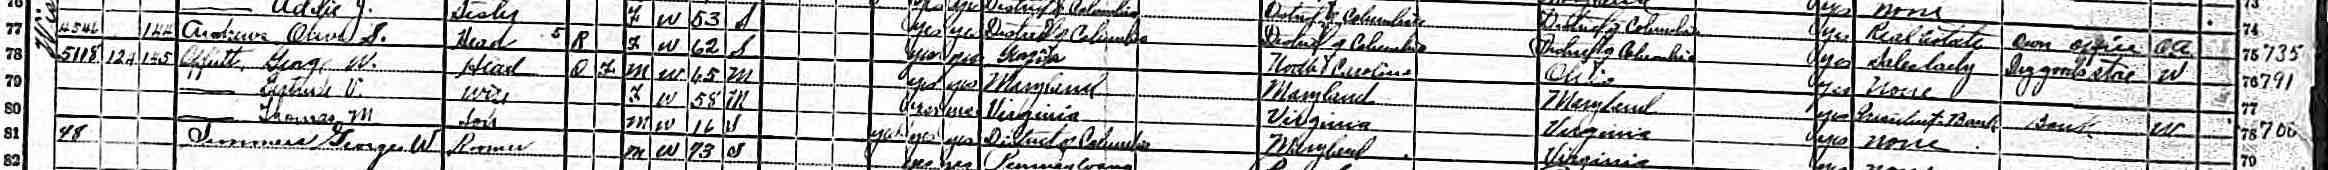 Addie J. Sister F W 53 S yes yes District of Columbia District of Columbia yes none 73
77 4546 144 Andrews Olive S. Head 5 R F W 62 S yes yes District of Columbia District of Columbia District of Columbia yes Real Estate own office OA 74
78 5118 124 145 Offutt, George W. Head O F M W 65 M yes yes Georgia North Carolina Ohio yes Saleslady Dry goods store W 75 735
79 Gertrude V. Wife F W 58 M yes yes Maryland Maryland Maryland yes None 76 791
80 Thomas M Son M W 16 S yes yes Virginia Virginia Virginia yes President Bank Bank W 77
81 48 Simmers George W Roomer M W 73 S yes yes yes District of Columbia Maryland Virginia yes none 78 700
82 yes yes Pennsylvania yes none 79